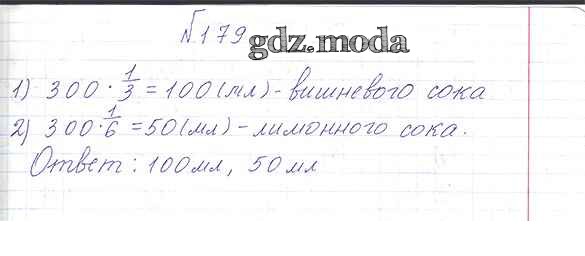 №179
gdz.moda
1) 300 · 1/3 = 100 (мл) - вишневого сока
2) 300 · 1/6 = 50 (мл) - лимонного сока.
Ответ: 100 мл, 50 мл